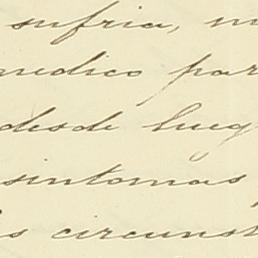 sufria, m
medico par
desde lueg
sintomas
s circunst